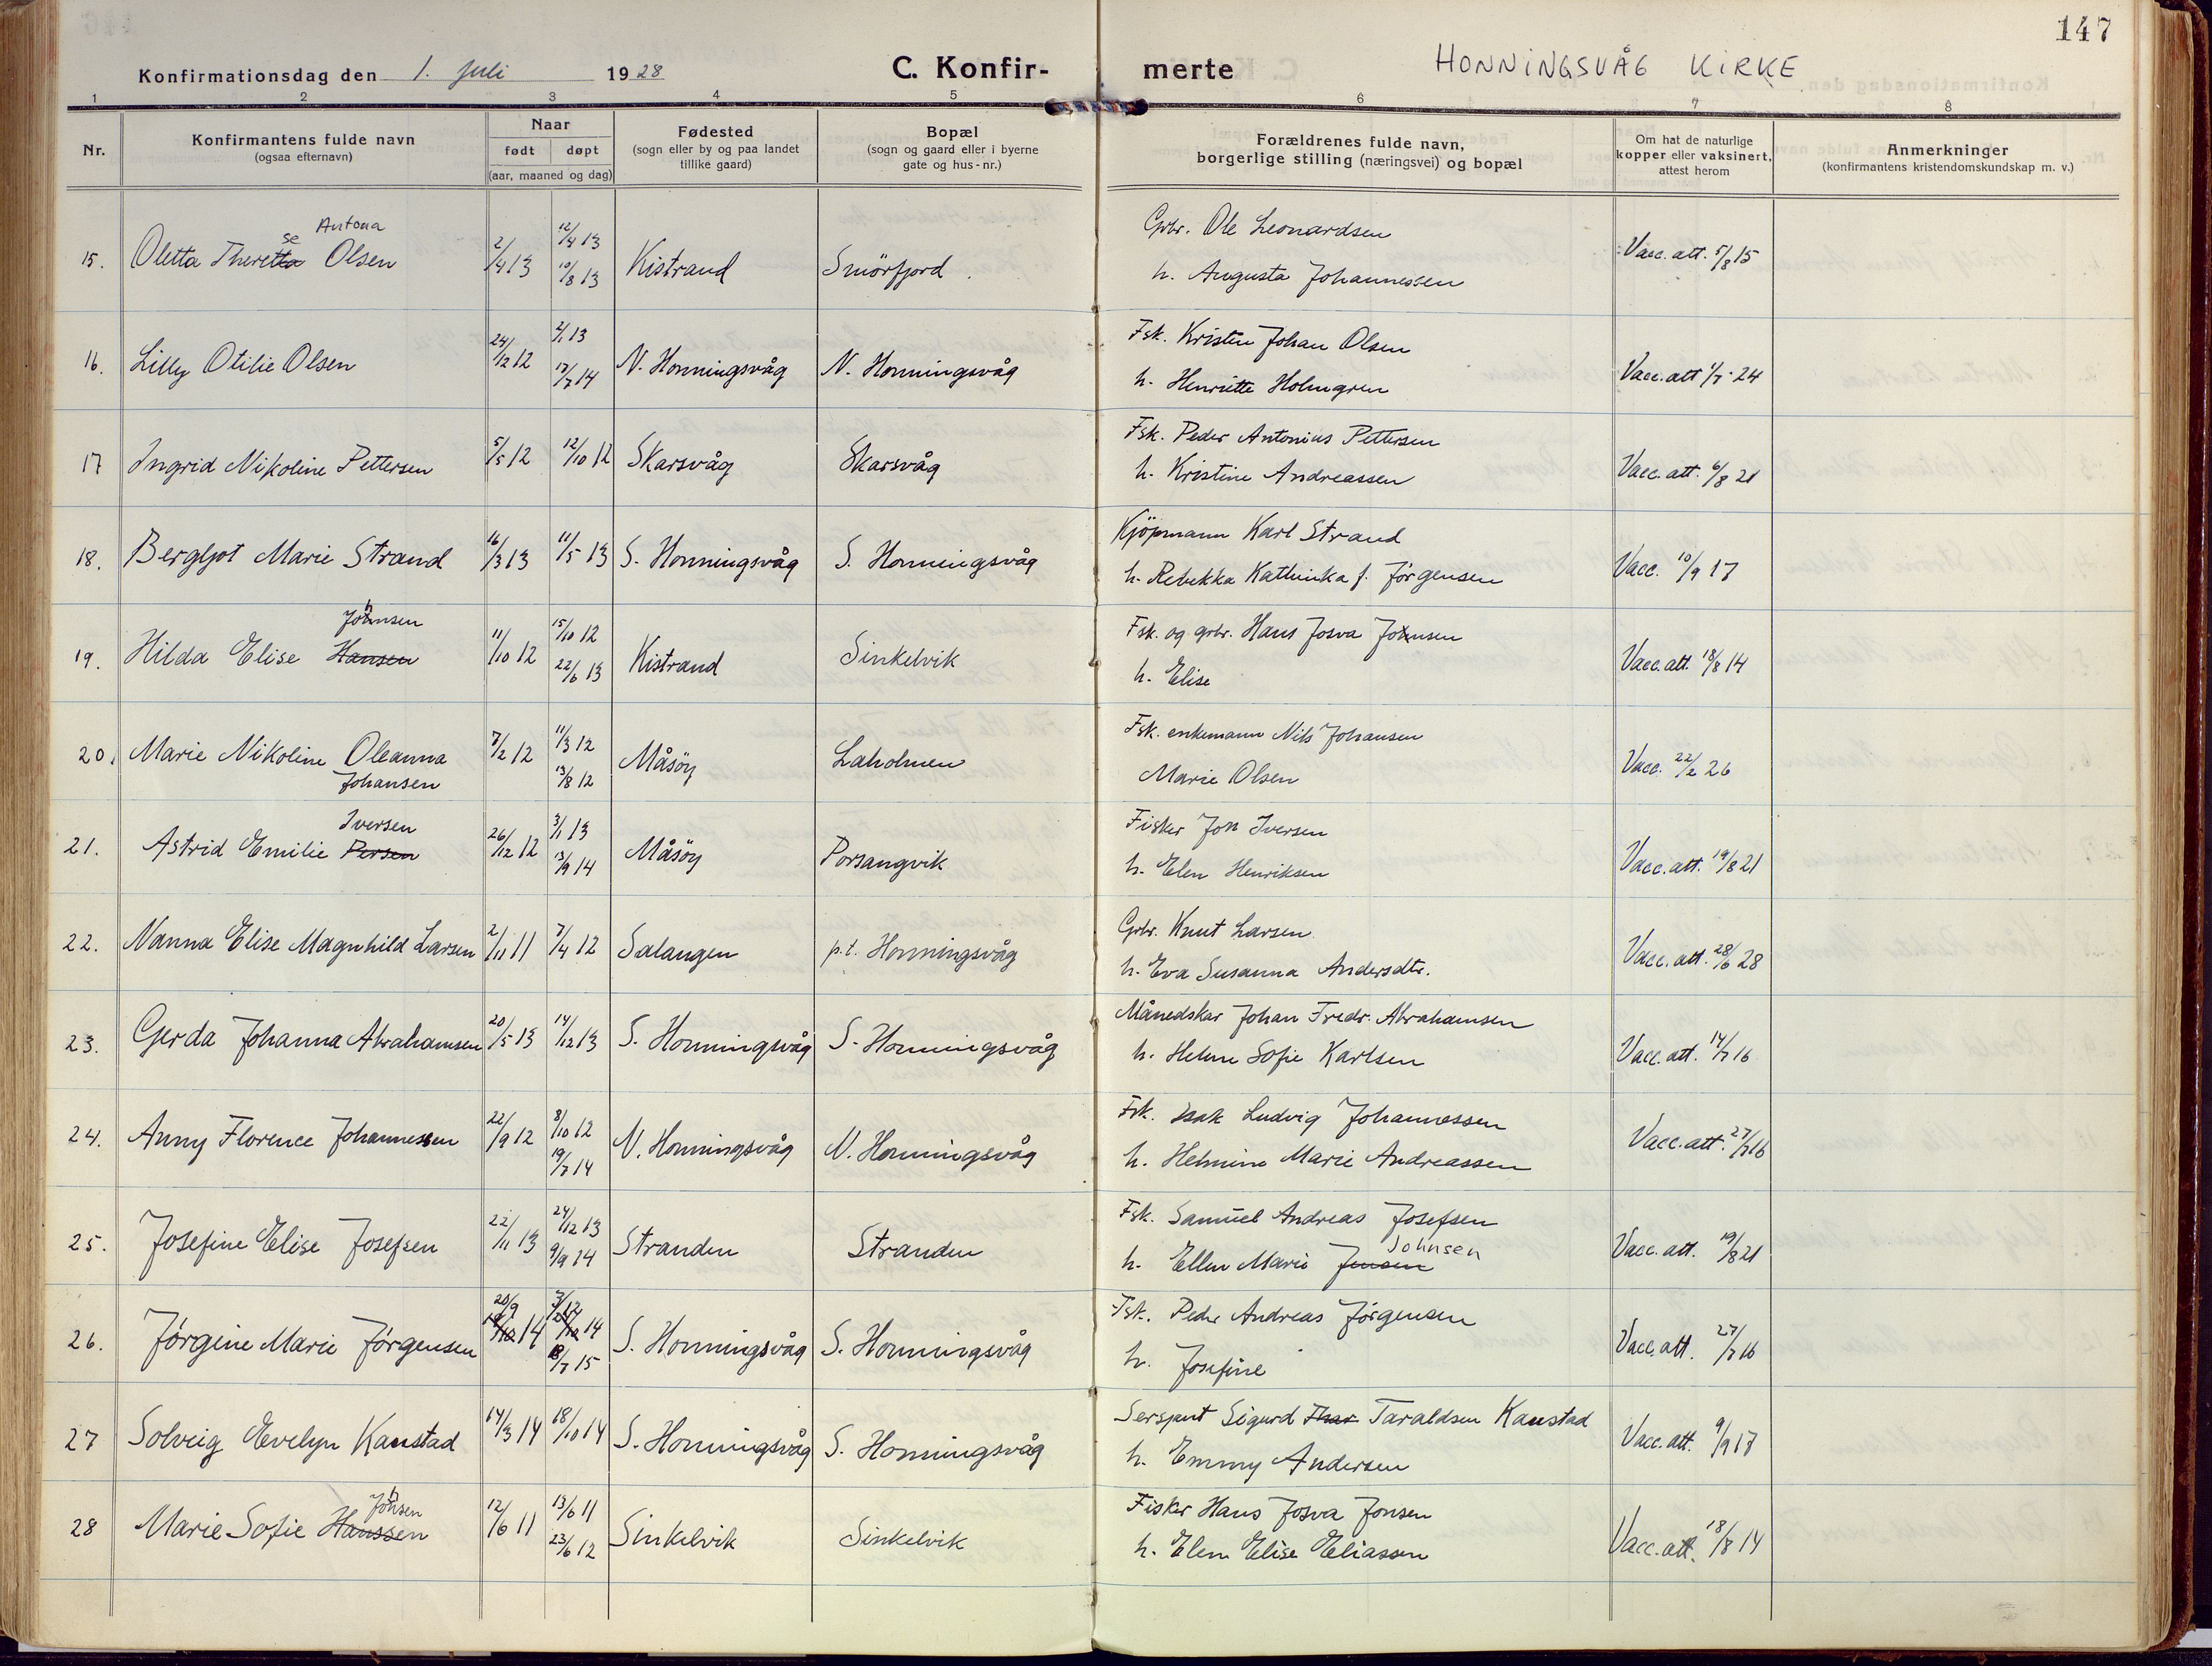 147
Konfirmationsdag den 1. juli 1928 C. Konfirmerte HONNINGSVÅG KIRKE
1 2 3 4 5 6 7 8
Nr.
Konfirmantens fulde navn
(ogsaa efternavn)
Naar
født døpt
(aar, maaned og dag)
Fødested
(sogn eller by og paa landet
tillike gaard)
Bopæl
(sogn og gaard eller i byerne
gate og hus-nr.)
Forældrenes fulde navn,
borgerlige stilling (næringsvei) og bopæl
Om hat de naturlige
kopper eller vaksinert,
attest herom
Anmerkninger
(konfirmantens kristendomskundskap m. v.)
Antona
se
15. Oletta Theretta Olsen 2/4 13 12/4 13 10/8 13 Kistrand Smörfjord.
Grbr. Ole Leonardsen
h. Augusta Johannessen
Vacc. att. 5/8 15
16. Lilly Otilie Olsen 24/12 12 2/1 13 17/7 14 N. Honningsvåg N. Honningsvåg
Fsk. Kristen Johan Olsen
h. Henriette Holmgren
Vacc. att 1/7 - 24
17 Ingrid Nikoline Pettersen 5/5 12 12/10 12 Skarsvåg Skarsvåg
Fsk. Peder Antonius Pettersen
h. Kristine Andreassen
Vacc. att. 6/8 21
18. Bergljot Marie Strand 16/3 13 11/5 13 S. Honningsvåg S. Honningsvåg
Kjöpmann Karl Strand
h. Rebekka Kathinka f. Jørgensen
Vacc. 10/9 17
Johnsen
19. Hilda Elise Hansen 11/10 12 15/10 12 22/6 13 Kistrand Sinkelvik
Fsk. og grbr. Hans Josva Johnsen
h. Elise
Vacc. att. 18/8 14
20. Marie Nikoline Oleanna
Johansen
7/2 12 11/3 12 13/8 12 Måsöy Laholmen
Fsk. enkemann Nils Johansen
Marie Olsen
Vacc. 22/2 26
Iversen
21. Astrid Emilie Persen 26/12 12 3/1 13 13/9 14 Måsöy Porsangvik
Fisker Jon Iversen
h. Elen Henriksen
Vacc. att. 19/8 21
22. Nanna Elise Magnhild Larsen 2/11 11 7/4 12 Salangen p.t. Honningsvåg
Grbr. Knut Larsen
h. Eva Susanna Andersdtr.
Vacc. att. 28/6 28
23. Gerda Johanna Abrahamsen 20/5 13 14/12 13 S. Honningsvåg S. Honningsvåg
Månedskar Johan Fredr. Abrahamsen
h. Helene Sofie Karlsen
Vacc. att. 14/7 16
24. Anny Florence Johannessen 22/9 12 8/10 12 19/7 14 N. Honningsvåg N. Honningsvåg
Fsk. Isak Ludvig Johannessen
h. Helmine Marie Andreassen
Vacc. att. 27/7 16
25. Josefine Elise Josefsen 22/11 13 24/12 13 9/9 14 Stranden Stranden
Fsk. Samuel Andreas Josefsen
Johnsen
h. Ellen Marie Jensen
Vacc. att. 19/8 21
26. Jørgine Marie Jørgensen 20/9 14 14 18/7 15 S. Honningsvåg S. Honningsvåg
Fsk. Peder Andreas Jørgensen
h. Josefine
Vacc. att. 27/7 16
27 Solveig Evelyn Kanstad 14/3 14 18/10 14 S. Honningsvåg S. Honningsvåg
Sersjant Sigurd Thor Taraldsen Kanstad
h. Emmy Andersen
Vacc. att. 9/9 17
Johnsen
28 Marie Sofie Hanssen 12/6 11 13/6 11 23/6 12 Sinkelvik Sinkelvik
Fisker Hans Josva Jonsen
h. Elen Elise Eliassen
Vacc. att. 18/8 14